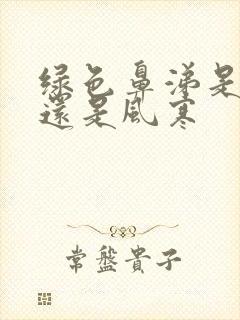 绿色鼻涕是
還是風寒
常盤貴子